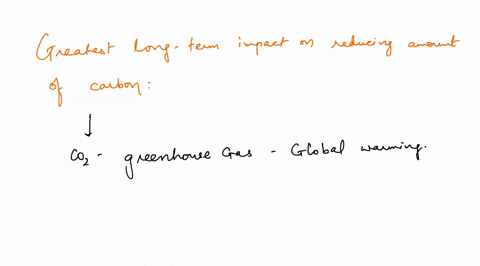 Greatest long-term impact on reducing amount
of carbon:
CO2 - greenhouse Gas - Global warming.